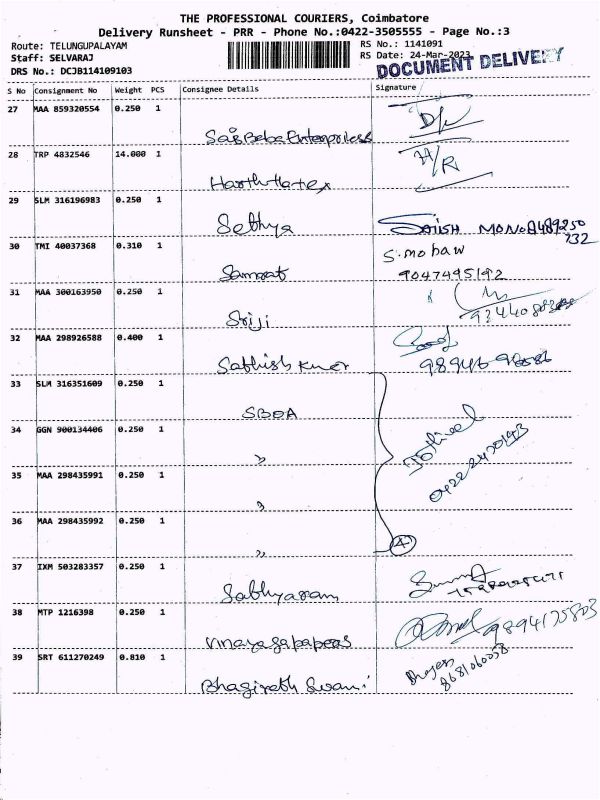 THE PROFESSIONAL COURIERS, Coimbatore
Delivery Runsheet - PRR - Phone No.:0422-3505555 - Page No.:3
Route: TELUNGUPALAYAM RS No.: 1141091
Staff: SELVARAJ RS Date: 24-Mar-2023
DRS No.: DCJB114109103 DOCUMENT DELIVERY
S No Consignment No Weight PCS Consignee Details Signature
27 MAA 859320554 0.250 1
28 TRP 4832546 14.000 1
H/R
29 SLM 316196983 0.250 1
Sethya SATISH
30 TMI 40037368 0.310 1 S.mohan
Samrat 9047495192
31 MAA 300163950 0.250 1
Sriji
32 MAA 298926588 0.400 1
33 SLM 316351609 0.250 1
SBOA
34 GGN 900134406 0.250 1
"
35 MAA 298435991 0.250 1
"
36 MAA 298435992 0.250 1
" 4
37 IXM 503283357 0.250 1
Sathyaram
38 MTP 1216398 0.250 1
Vinayaga papers 9894175803
39 SRT 611270249 0.810 1
8681060058
Bhagirath Swami